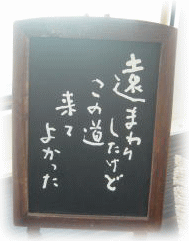 遠まわり
したけど
この道
来て
よかった